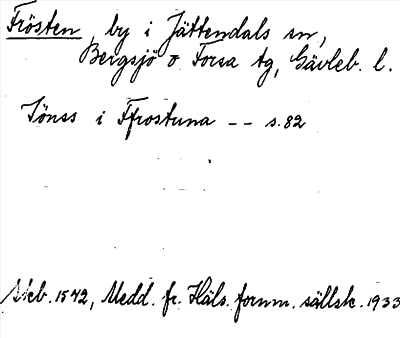 Frösten, by i Jättendals sn,
Bergsjö o Forsa tg, Gävleb. l.
Jönss i Ffrostuna -- s. 82
Skb. 1542, Medd. fr. Häls. fornm. sällsk. 1933